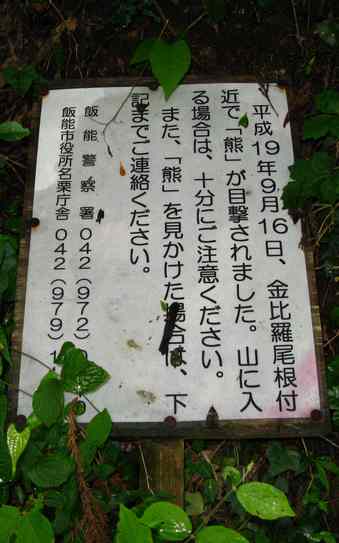 平成19年9月16日、金比羅尾根付
近で「熊」が目撃されました。山に入
る場合は、十分にご注意ください。
また、「熊」を見かけた場合は、下
記までご連絡ください。
飯能警察署 042(972)0
飯能市役所名栗庁舎 042(979)1